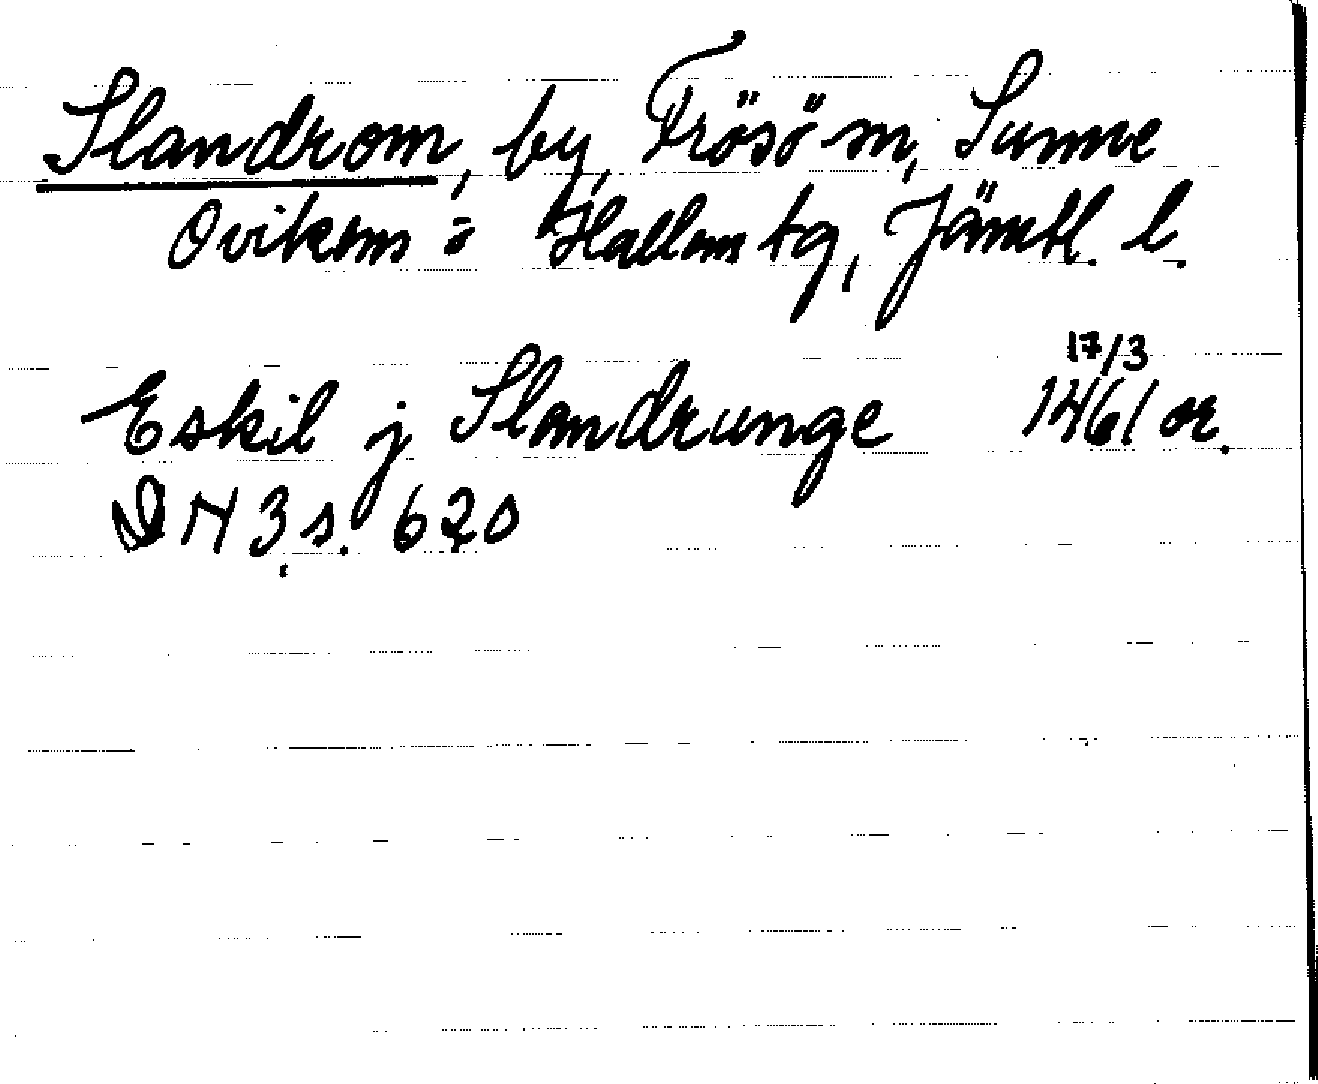 Slandrom, by, Frösö sn, Sunne
Ovikens o Hallens tg, Jämtl. l.
17/3
Eskil j Slandrunge 1461 or.
DN 3 s. 620